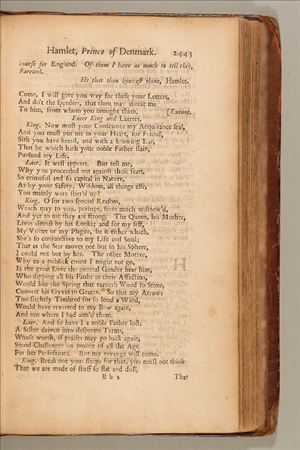 Hamlet, Prince of Denmark. 2443
course for England. Of them I have as much to tell thee,
Farewel.
He that thou knowest thine, Hamlet.
Come, I will give you way for these your Letters,
And do't the speedier, that thou may direct me
To him, from whom you brought them. [Exeunt.
Enter King and Laertes.
King. Now must your Conscience my Acquittance seal,
And you must put me in your Heart, for Friend,
Sith you have heard, and with a knowing Ear,
That he which hath your noble Father slain,
Pursued my Life.
Laer. It well appears. But tell me,
Why you proceeded not against those feats,
So crimeful and so capital in Nature,
As by your Safety, Wisdom, all things else,
You mainly were stirr'd up?
King. O for two special Reasons,
Which may to you, perhaps, seem much unsinew'd,
And yet to me they are strong. The Queen, his Mother,
Lives almost by his Looks; and for my self,
My Virtue or my Plague, be it either which,
She's so conjunctive to my Life and Soul;
That as the Star moves not but in his Sphere,
I could not but by her. The other Motive,
Why to a publick count I might not go,
Is the great Love the general Gender bear him,
Who dipping all his Faults in their Affection,
Would like the Spring that turneth Wood to Stone,
Convert his Gyves to Graces. So that my Arrows
Too slightly Timbred for so loud a Wind,
Would have reverted to my Bow again,
And not where I had aim'd them.
Laer. And so have I a noble Father lost,
A Sister driven into desperate Terms,
Whose worth, if praises may go back again,
Stood Challenger on mount of all the Age
For her Perfections. But my revenge will come.
King. Break not your sleeps for that, you must not think
That we are made of stuff so flat and dull,
B b 2 That